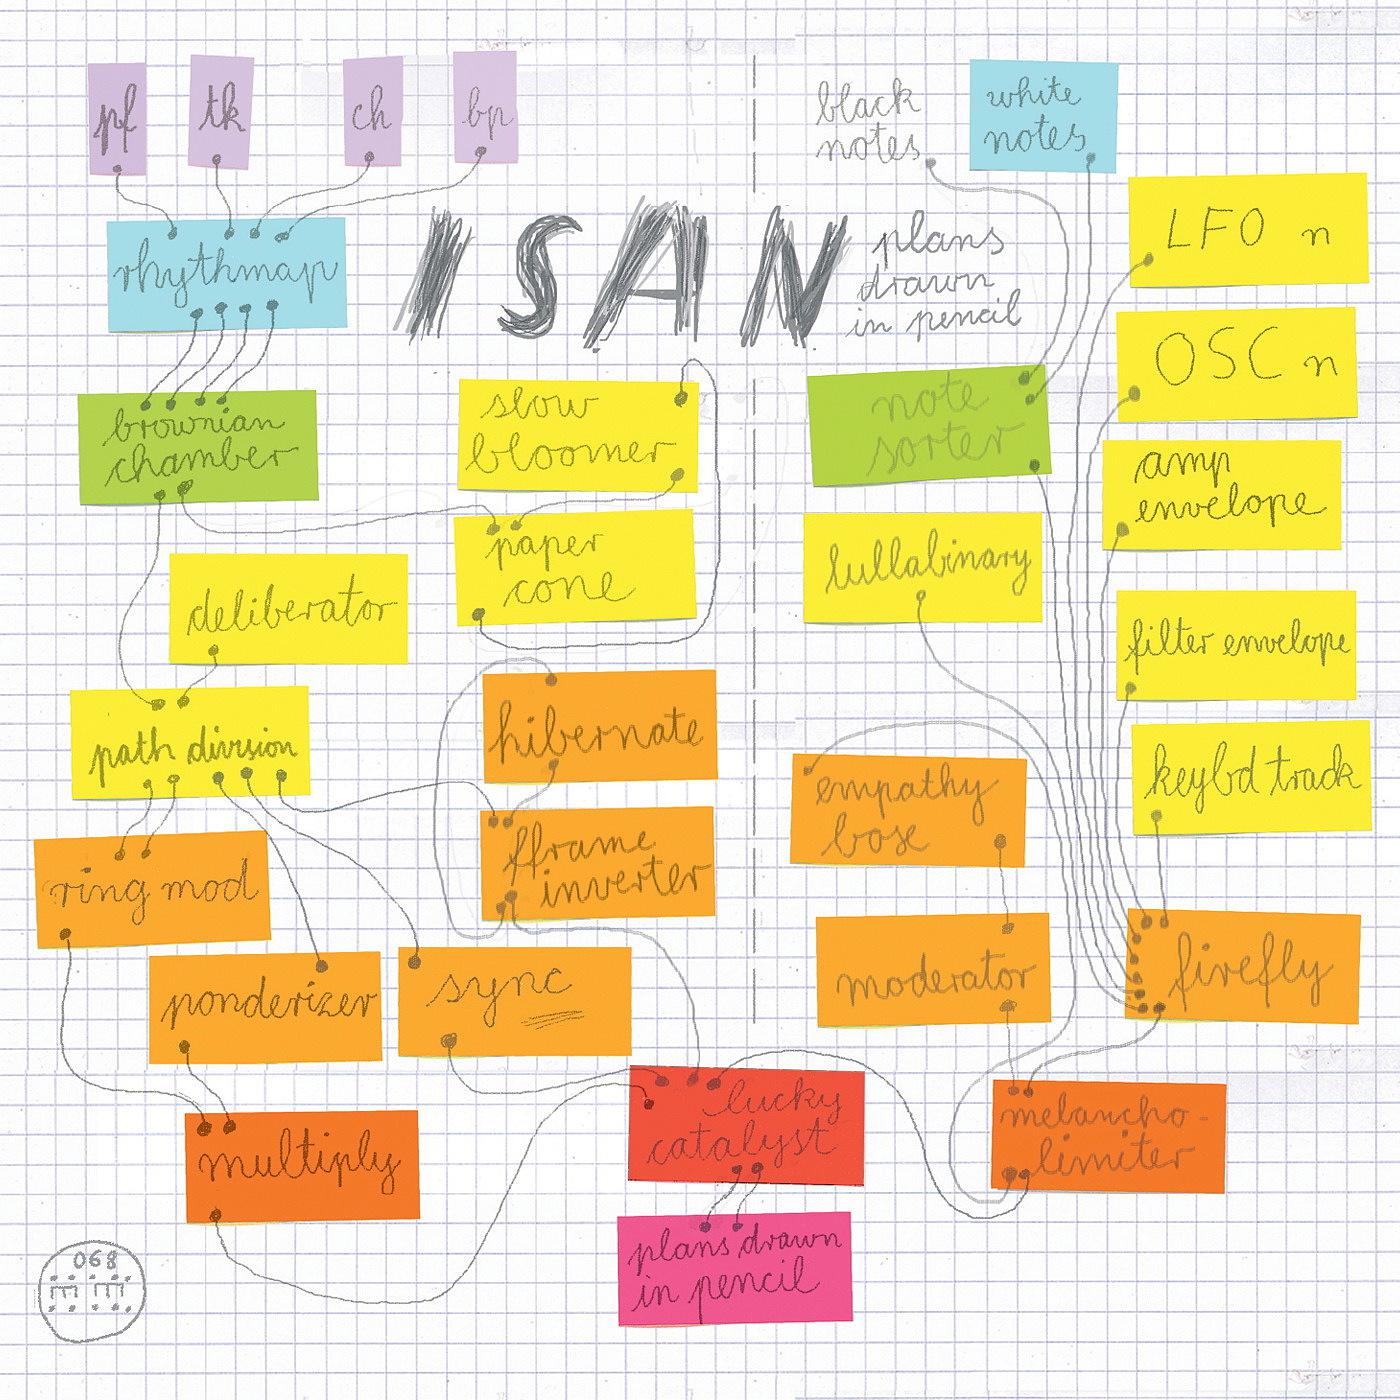 pf
tk
ch
bp
rhythmap
brownian
chamber
deliberator
path division
ring mod
ponderizer
multiply
ISAN
plans
drawn
in pencil
slow
bloomer
paper
cone
hibernate
fframe
inverter
sync
lucky
catalyst
plans drawn
in pencil
black
notes
white
notes
note
sorter
lullabinary
empathy
bose
moderator
melancho-
limiter
LFO n
OSC n
amp
envelope
filter envelope
keybd track
firefly
068